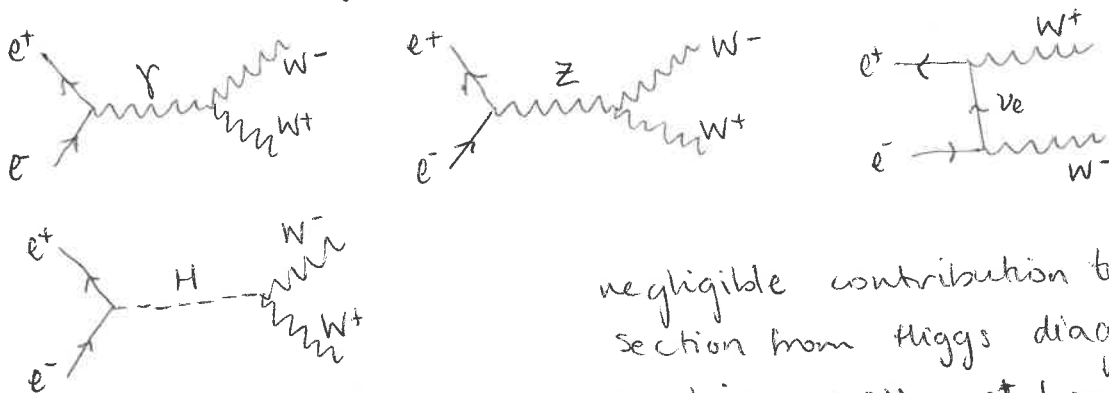 e+ γ W- W+ e-
e+ Z W- W+ e-
e+ W+ νe e- W-
e+ H W- W+ e-
negligible contribution to
section from Higgs